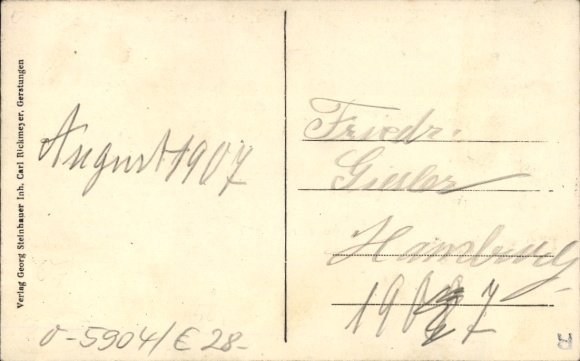 Verlag Georg Steinhauer Inh. Carl Rickmeyer, Gerstungen
August 1907
o-5904/€ 28-
Friedr.
Giesler
Hamburg
1907